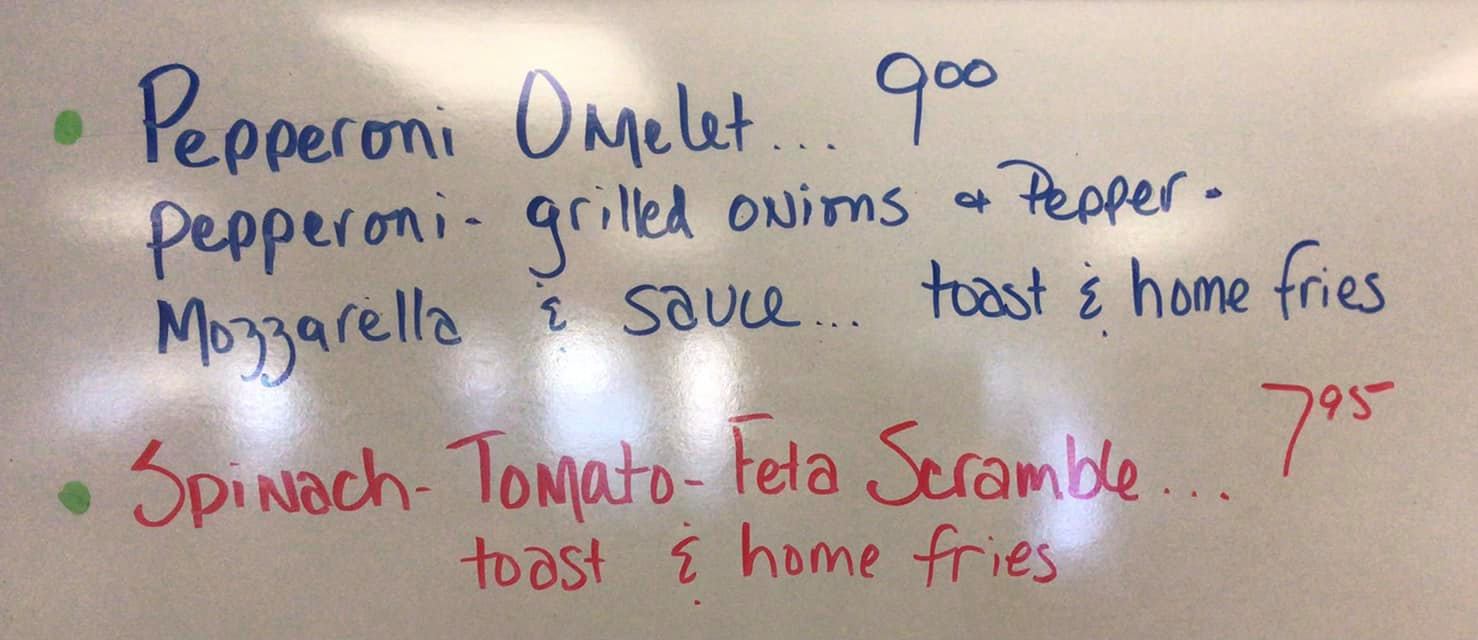 • Pepperoni Omelet... 900
pepperoni - grilled onions & Pepper -
Mozzarella & sauce... toast & home fries
• Spinach - Tomato - Feta Scramble... 795
toast & home fries